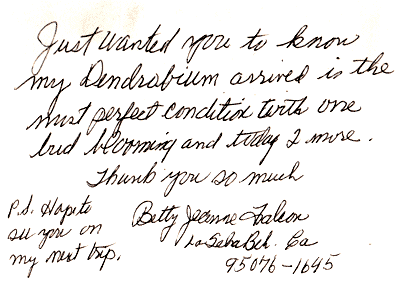 Just wanted you to know
my Dendrabium arrived is the
most perfect condition with one
bud blooming and today 2 more.
Thank you so much
P.S. Hope to
see you on
my next trip.
Betty Jeanne
La Selva Bch. Ca
95076-1645